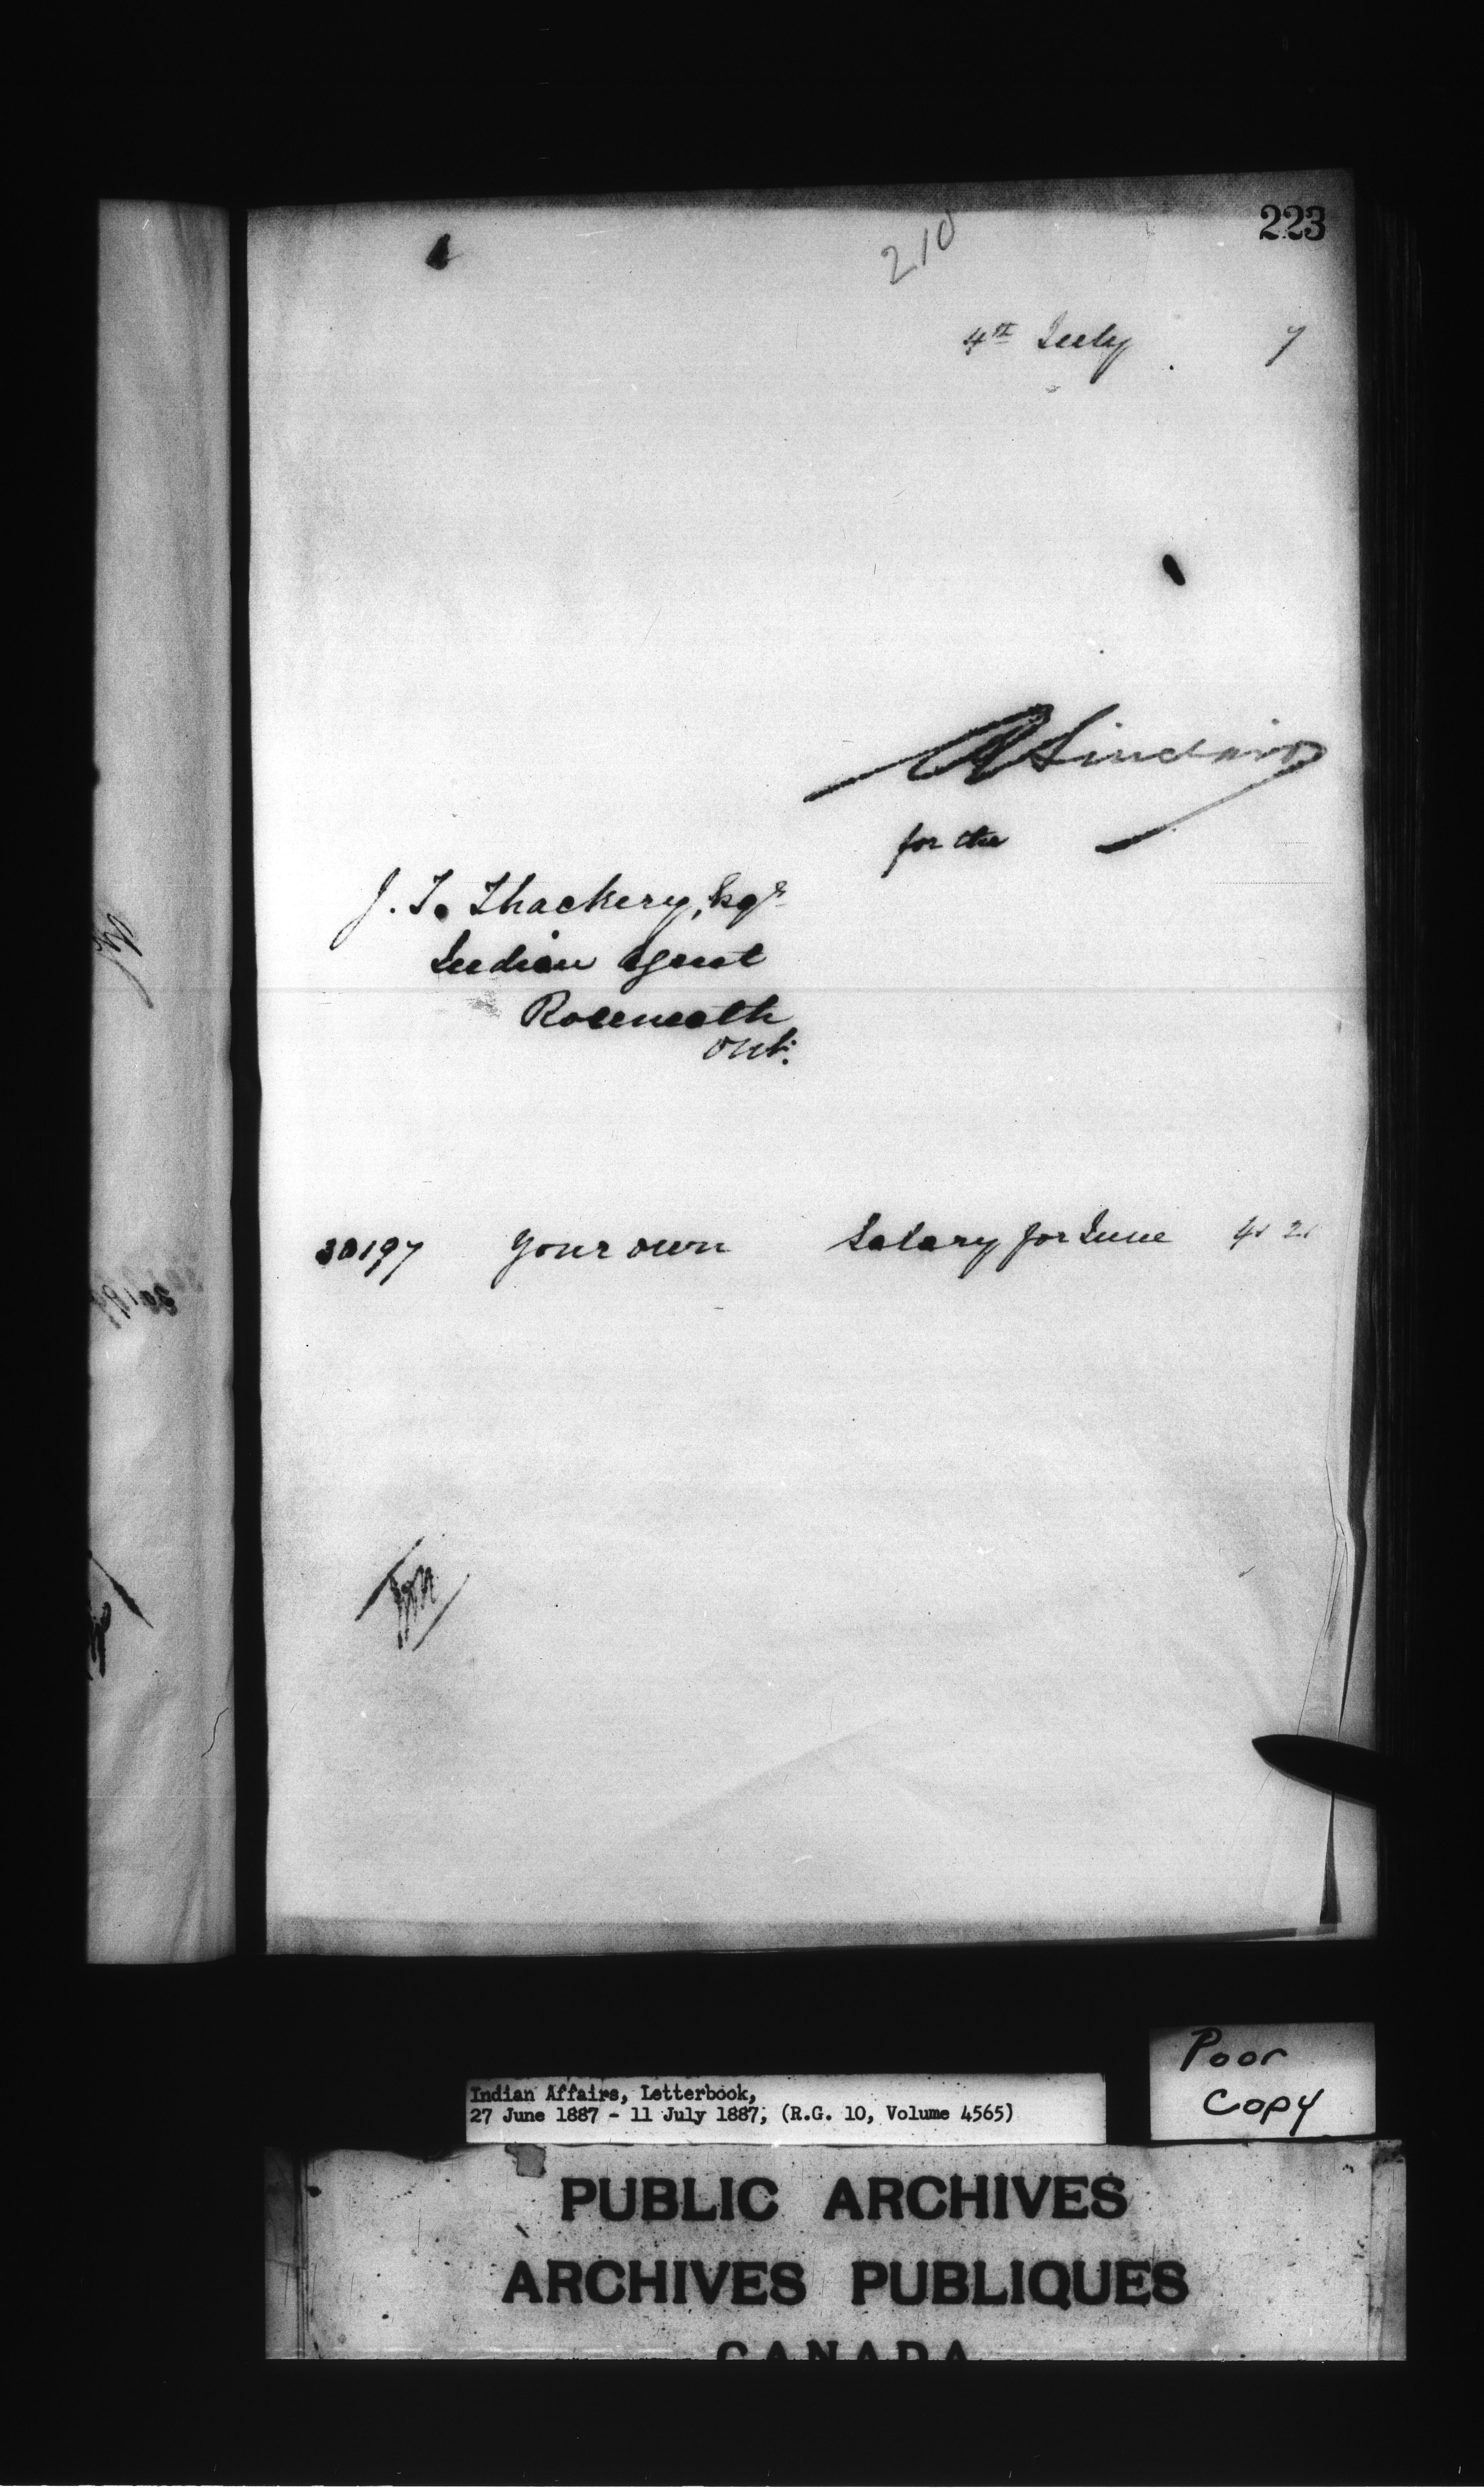 223
210
4th July 7
A Sinclair
for the
J. T. Thackery, Esqr
Indian Agent
Roseneath
Ont.
30197 Your own Salary for June
Poor
Copy
Indian Affairs, Letterbook,
27 June 1887 - 11 July 1887, (R.G. 10, Volume 4565)
PUBLIC ARCHIVES
ARCHIVES PUBLIQUES
CANADA